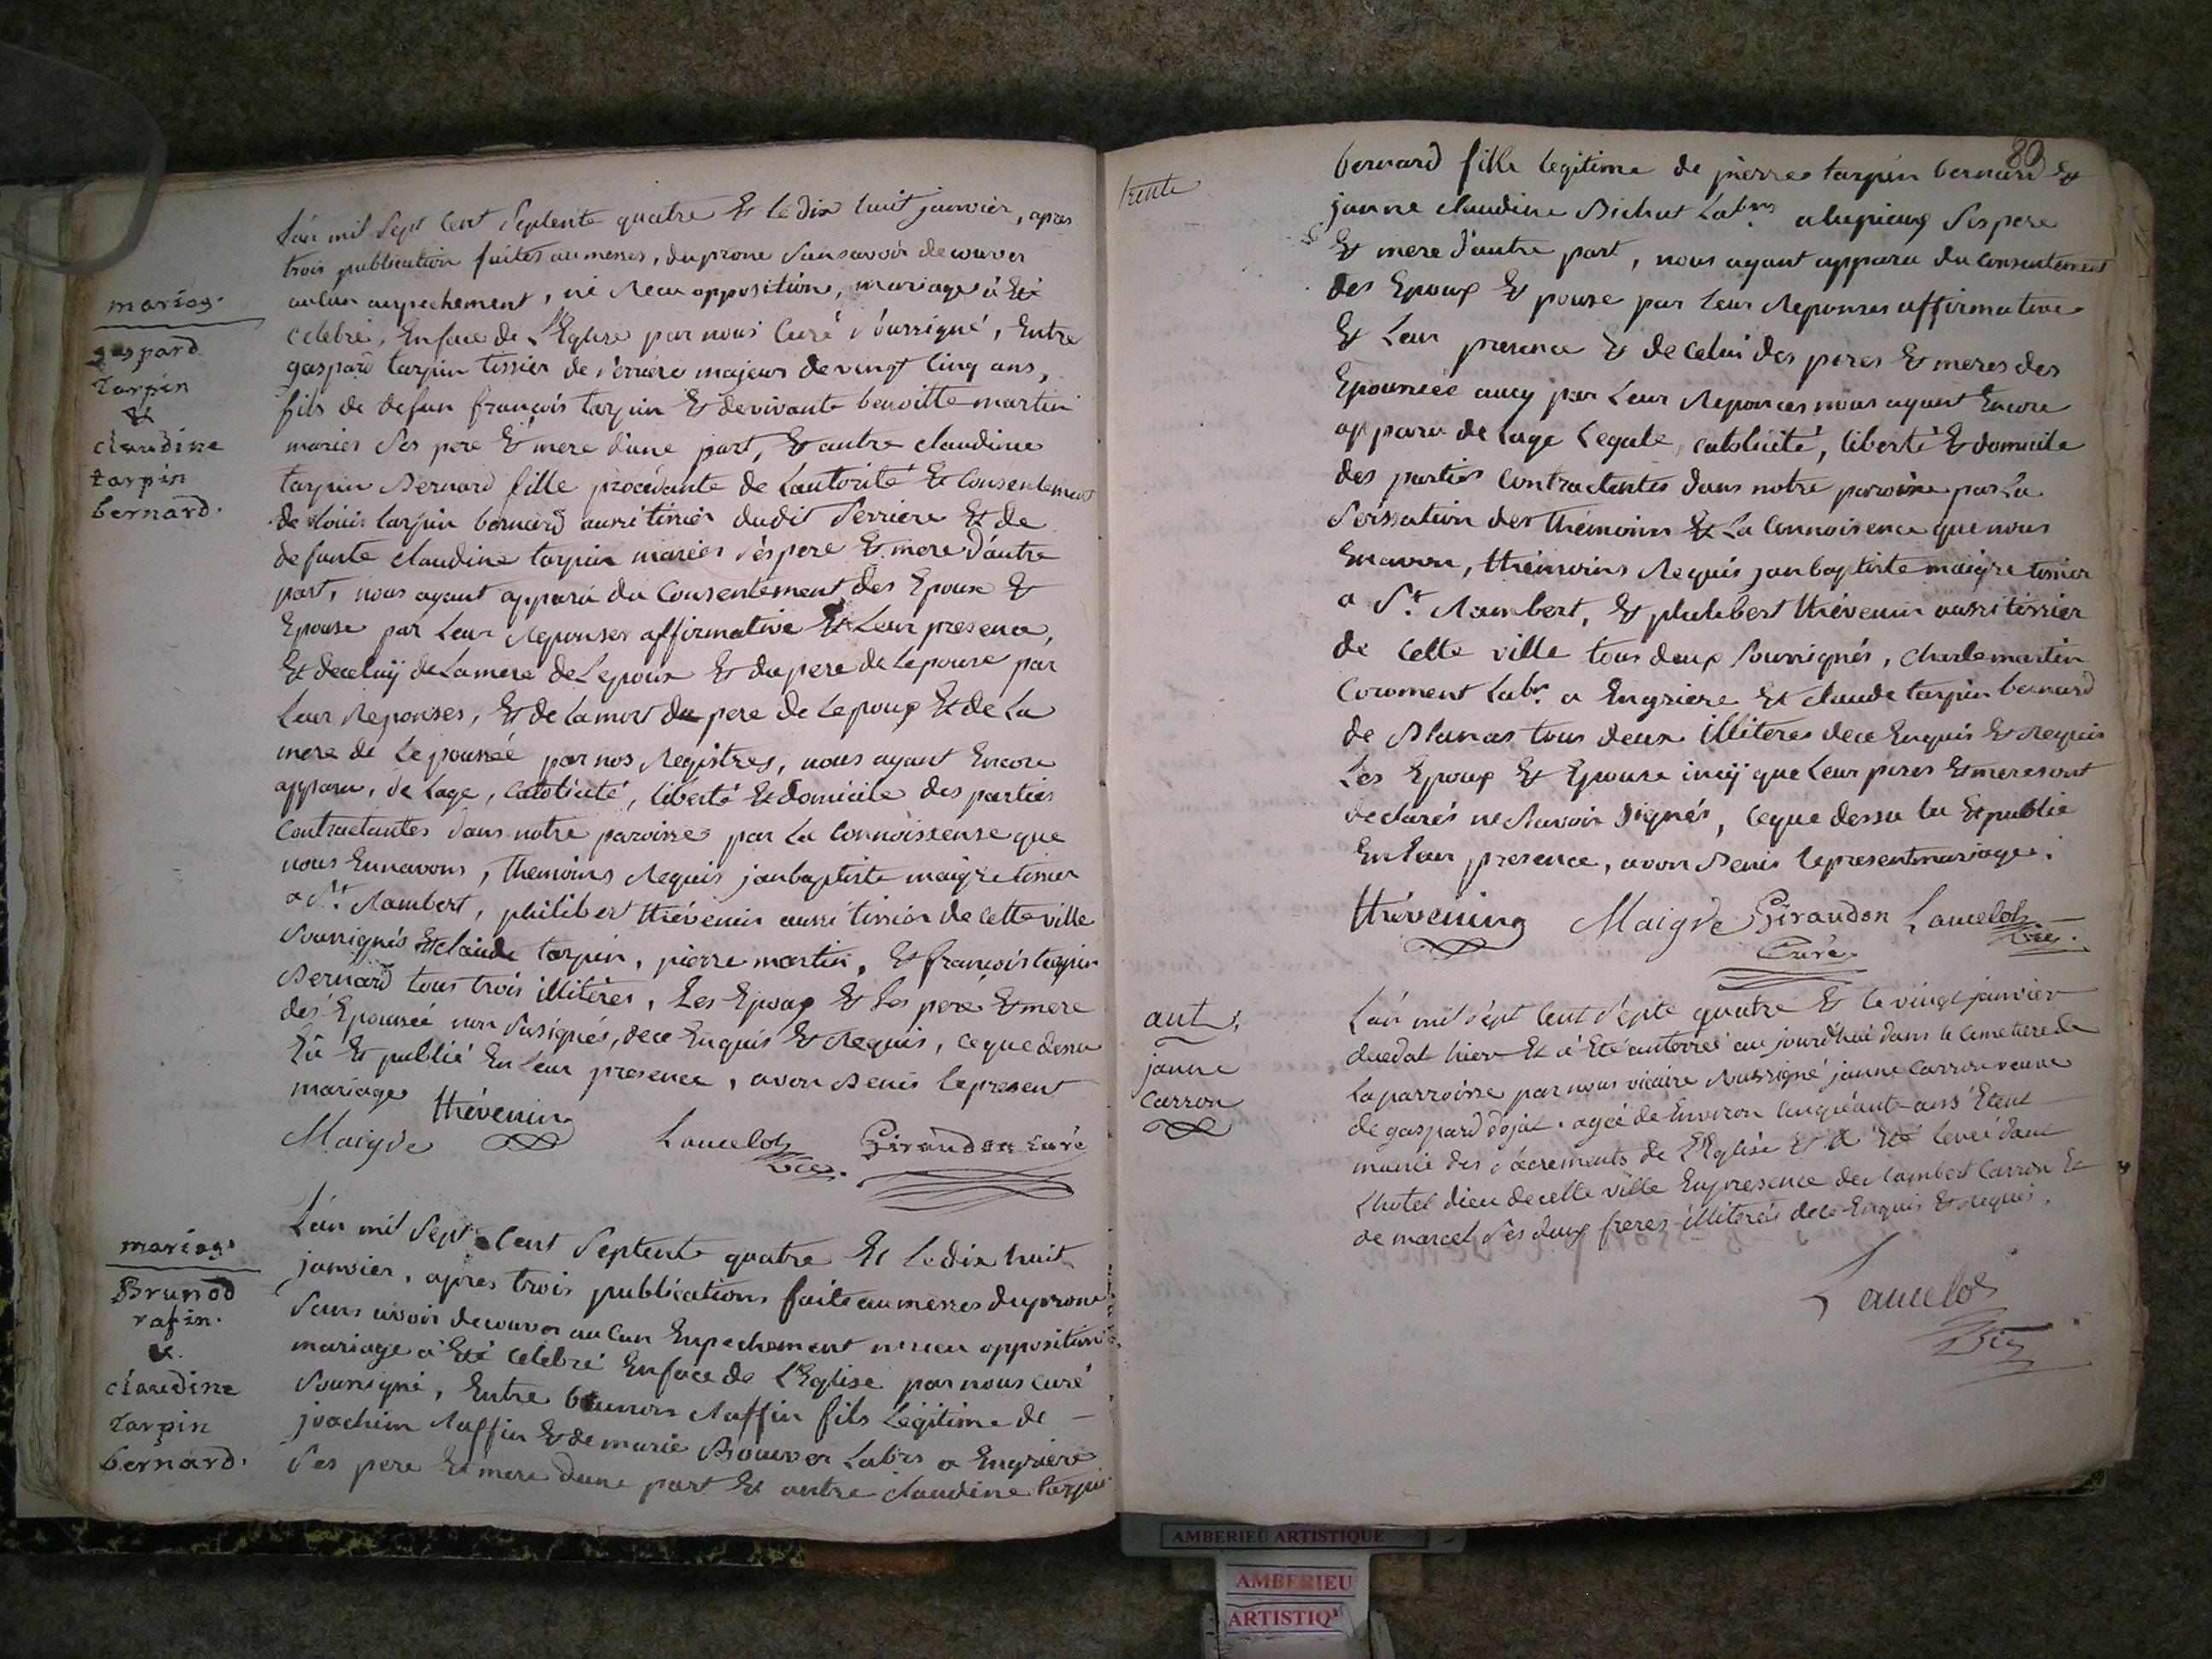 mariag.
gaspard
tarpin
&
claudine
tarpin
bernard.
L'an mil sept cent septente quatre Et le dix huit janvier, apres
trois publication faites au messes, du prone sans avoir decouver
aucun anpechement, ni Reçu opposition, mariage à Eté
celebré, En face de L'Eglise par nous Curé soussigné, Entre
gaspard tarpin tissier de serriere majeur de vingt cinq ans,
fils de defun françois tarpin Et de vivante benoitte martin
mariés ses pere Et mere d'une part, Et autre claudine
tarpin Bernard fille procédante de L'autorité Et Consentement
de Louis tarpin bernard aussi tissier dudit serriere Et de
defunte claudine tarpin mariés ses pere Et mere d'autre
part, nous ayant apparu du Consentement des Epoux Et
Epouse par Leur Reponses affirmative Et Leur presence,
Et de celuÿ de La mere de L'epoux Et du pere de L'epouse par
Leur Reponses, Et de La mort du pere de L'epoux Et de La
mere de L'epousée par nos Registres, nous ayant Encore
apparu, de L'age, catolicité, liberté Et domicile des parties
Contractantes dans notre paroisse par La Connoissense que
nous En navons, themoins Requis jan baptiste maigre tissier
a St. Rambert, philibert thévenin aussi tissier de cette ville
soussignés Et claude tarpin, pierre martin, Et françois tarpin
Bernard tous trois illitérés, Les Epoux Et Les pere Et mere
des Epousée non susignés, de ce Enquis Et Requis, ce que dessu
Lu Et publié En Leur presence, avon Benis le present
mariage thévenin
Maigre Lancelot vic. Girandon curé
mariag.
Brunod
rafin.
&
claudine
tarpin
bernard.
L'an mil sept cent septente quatre Et le dix huit
janvier, apres trois publications faite au messes du prone
sans avoir decouver aucun Enpechement ni reçu opposition
mariage à Eté celebré En face de L'Eglise par nous curé
soussigné, Entre Raffin fils Légitime de
joachim Raffin Et de marie Bouvier Labrs a Engriere
ses pere Et mere d'une part Et autre claudine tarpin
80
trente
bernard fille legitime de pierre tarpin bernard Et
janne claudine Bichat Labrs ses pere
Et mere d'autre part, nous ayant apparu du consentement
des Epoux Et pouse par leur Reponses affirmative
Et Leur presence Et de celui des peres Et meres des
Epousée aucy par Leur Reponces nous ayant Encore
apparu de L'age Legale, catolicité, liberté Et domicile
des parties Contractantes dans notre paroisse par La
Themoins Et La Connoisence que nous
En avon, themoins Requis jan baptiste maigre tissier
a St. Rambert, Et philibert thévenin aussi tissier
de cette ville tous deux soussignés, charle martin
Labr. a Engriere Et claude tarpin bernard
de Blanas tous deux illiteres de ce Enquis Et Requis
Les Epoux Et Epouse que Leur peres Et mere ont
declarés ne savoir signés, ce que dessu lu Et publié
En Leur presence, avon Benis le present mariage.
thévening Maigre Girandon Lancelot vic.
Curé
ant.
janne
Carron
L'an mil sept cent septe quatre Et le vingt janvier
decedat hier Et à Eté anterreé au jourd'hui dans le cemetiere de
La parroisse par nous vicaire soussigné janne Carron veuve
de gaspard dojat. agée de Environ cinqüante ans Etent
munie des sacrements de L'Eglise Et à Eté levée dans
L'hotel dieu de cette ville En presence de Rambert Carron Et
de marcel ses deux freres illiterés de ce Enquis Et Requis.
Lancelot
vic
AMBERIEU ARTISTIQUE
AMBERIEU
ARTISTIQ